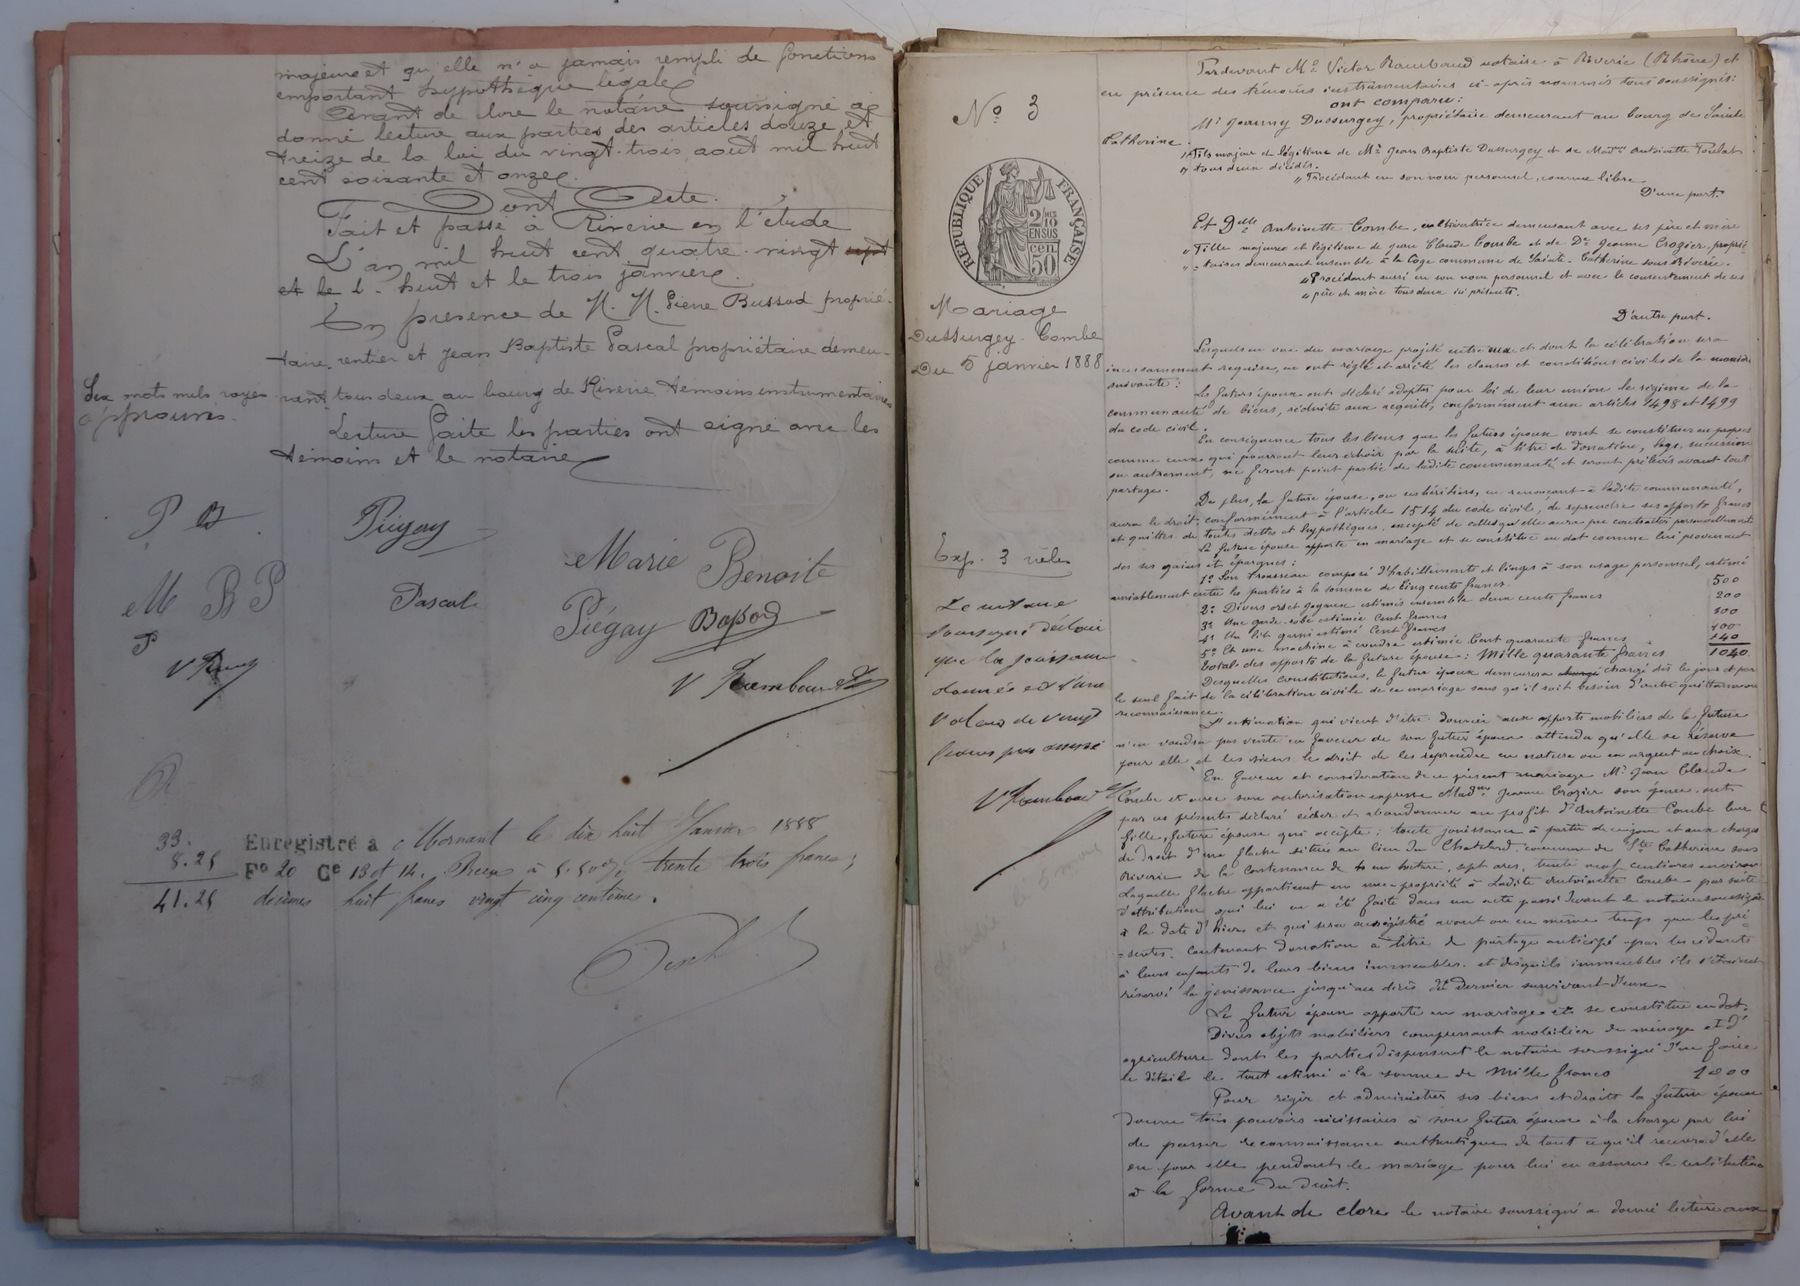 majeure et qu'elle n'a jamais rempli de fonctions
emportant hypothèque légale
Avant de clore le notaire soussigné a
donné lecture aux parties des articles douze et
treize de la loi du vingt-trois août mil huit
cent soixante et onze.
Dont Acte.
Fait et passé à Riverie en l'étude
L'an mil huit cent quatre-vingt sept
et le l - huit et le trois janvier.
En présence de M. M. Pierre Bussod proprié-
taire, rentier et Jean Baptiste Pascal propriétaire demeu-
rant tous deux au bourg de Riverie témoins instrumentaires
Lecture faite les parties ont signé avec les
témoins et le notaire
Six mots nuls rayés
approuvés.
P B
Piégay
Marie Benoite
M B P
Pascal
Piégay
P
V Raumbaud
33.
8.25
41.25
Enregistré à Mornant le dix huit Janvier 1888
Fo 20 Ce 13 et 14. Reçu à trente trois francs;
décimes huit francs vingt cinq centimes.
No 3
RÉPUBLIQUE FRANÇAISE
2/10 EN SUS
50 cen
Mariage
Dussurgey Combe
Du 5 janvier 1888
Exp. 3 rôles
Le notaire
soussigné déclare
que la jouissance
donnée est d'une
valeur de vingt
francs
V Raumbaud
Pardevant Me Victor Raumbaud notaire à Riverie (Rhône) et
en présence des témoins instrumentaires ci-après nommés tous soussignés:
ont comparu:
Mr Joanny Dussurgey, propriétaire demeurant au bourg de Sainte
Catherine.
"Fils majeur et légitime de Mr Jean Baptiste Dussurgey et de Antoinette
" tous deux décédés.
" Procédant en son nom personnel, comme libre
D'une part.
Et Delle Antoinette Combe, cultivatrice demeurant avec ses père et mère
"Fille majeure et légitime de Jean Claude Combe et de De Jeanne Crozier, proprié
"-taires demeurant ensemble à la Loge commune de Sainte-Catherine sous Riverie.
"Procédant aussi en son nom personnel et avec le consentement de ses
" père et mère tous deux ici présents.
D'autre part.
Lesquels en vue du mariage projeté entre eux et dont la célébration sera
incessamment requise, en ont réglé et arrêté les clauses et conditions civiles de la manière
suivante:
Les futurs époux ont déclaré adopter pour loi de leur union le régime de la
communauté de biens, réduite aux acquêts, conformément aux articles 1498 et 1499
du code civil.
En conséquence tous les biens que les futurs époux vont se constituer en propres
comme ceux qui pourront leur échoir par la suite, à titre de donation, legs, succession
ou autrement, ne feront point partie de ladite communauté et seront prélevés avant tout
partage.
De plus, la future épouse, ou ses héritiers, en renonçant à ladite communauté,
aura le droit, conformément à l'article 1514 du code civil, de reprendre ses apports francs
et quittes de toutes dettes et hypothèques, excepté de celles qu'elle aura pu contracter personnellement
La future épouse apporte en mariage et se constitue en dot comme lui provenant
de ses gains et épargnes:
1° Son trousseau composé d'habillements et linges à son usage personnel, estimé
amiablement entre les parties à la somme de Cinq cents francs. 500
2° Divers or et joyaux estimés ensemble deux cents francs 200
3° Une garde-robe estimée Cent francs 100
4° Un lit garni estimé Cent francs 100
5° Et une machine à coudre estimée Cent quarante francs 140
Total des apports de la future épouse: Mille quarante francs 1040
Desquelles constitutions, le futur époux demeurera chargé dès le jour et par
le seul fait de la célébration civile de ce mariage sans qu'il soit besoin d'autre quittance ou
reconnaissance.
L'estimation qui vient d'être donnée aux apports mobiliers de la future
n'en vaudra pas vente en faveur de son futur époux attendu qu'elle se réserve
pour elle et les siens le droit de les reprendre en nature ou en argent au choix.
En faveur et considération de ce présent mariage Mr Jean Claude
Combe et avec son autorisation expresse Madme Jeanne Crozier son épouse ont
par ces présentes déclaré céder et abandonner au profit d'Antoinette Combe leur
fille, future épouse qui accepte: toute jouissance à partir de ce jour et aux charges
de droit d'une située au lieu du Chatelard commune de Ste Catherine sous
Riverie de la contenance de sept ares, trente neuf centiares environ
Laquelle appartient en nue-propriété à Ladite Antoinette Combe par suite
d'attribution qui lui en a été faite dans un acte passé devant le notaire soussigné
à la date d'hier et qui sera enregistré avant ou en même temps que les pré
-sentes. Contenant donation à titre de partage anticipé par les cédants
à leurs enfants de leurs biens immeubles. et desquels immeubles ils s'étaient
réservé la jouissance jusqu'au décès du dernier survivant d'eux.
Le futur époux apporte en mariage et se constitue en dot.
Divers objets mobiliers comprenant mobilier de ménage et d'
agriculture dont les parties dispensent le notaire soussigné d'en faire
le détail le tout estimé à la somme de Mille francs 1000
Pour régir et administrer ses biens et droits la future épouse
donne tous pouvoirs nécessaires à son futur époux à la charge par lui
de passer reconnaissance authentique de tout ce qu'il recevra d'elle
ou pour elle pendant le mariage pour lui en assurer la restitution
à la forme du droit.
Avant de clore le notaire soussigné a donné lecture aux